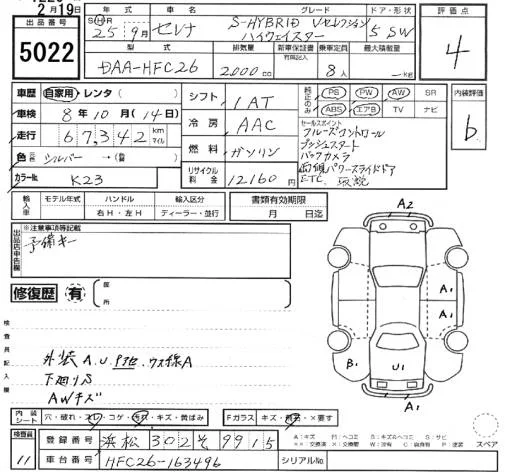 2月19日
出品番号
5022
年式 車名 グレード ドア・形状
S H R 25年9月 セレナ S-HYBRID Vセレクション ハイウェイスター 5 SW
型式 排気量 新車保証書 有買記入 乗車定員 最大積載量
DAA-HFC26 2000cc 8人 kg
評価点
4
車歴 自家用・レンタ( )
車検 8年10月(14日)
走行 67,342 km マイル
色 元色 シルバー →(替)
カラーNo. K23
シフト 1AT
冷房 AAC
燃料 ガソリン
リサイクル料金 12160円
純正のみ PS PW AW SR
ABS エアB TV ナビ
セールスポイント
クルーズコントロール
プッシュスタート
バックカメラ
両側パワースライドドア
ETC、取説
内装評価
b
輸入車 モデル年式 ハンドル 輸入区分
右H・左H ディーラー・並行
書類有効期限
月 日迄
出品店申告欄
※注意事項等記載
予備キー
修復歴 有 箇所
検査員記入欄
外装A.U.P他.ウス線A
下廻りS
AWキズ
A2
A1
A1
B1
U1
A1
内装シート 穴・破れ・スレ・コゲ・キズ・黄ばみ
Fガラス キズ・×要す
A:キズ H:ヘコミ S:サビ
スペア
検査員
11
登録番号 浜松 302 そ 9915
車台番号 HFC26-163496
シリアルNo.